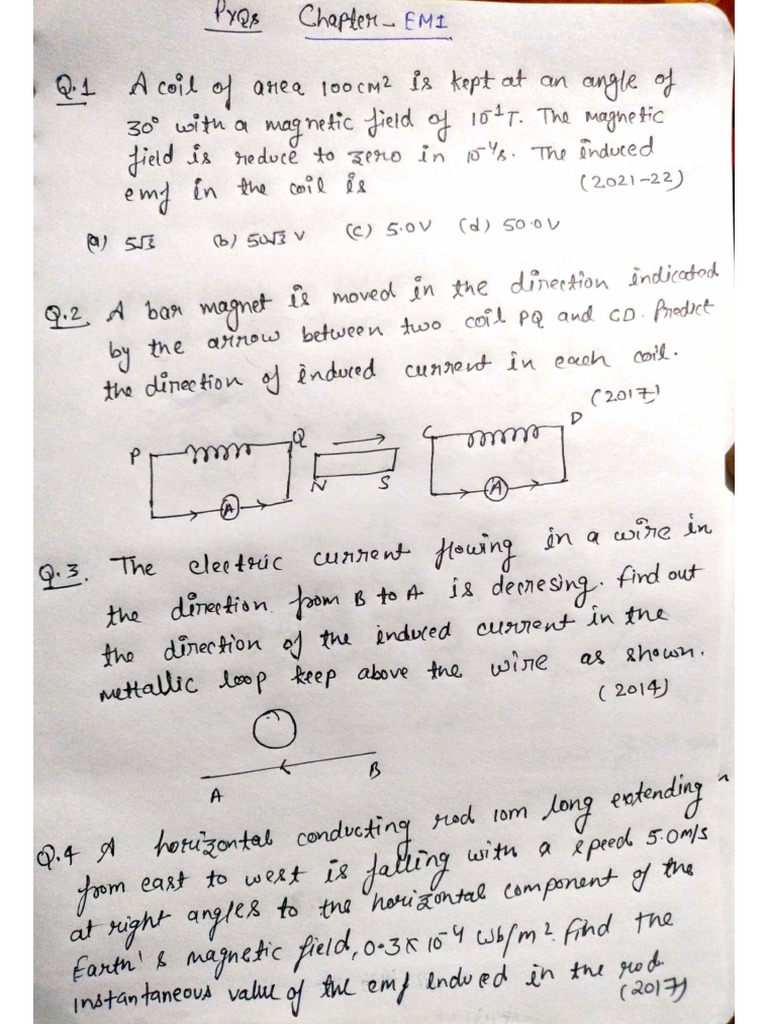 PYQs Chapter - EMI
Q.1 A coil of area 100cm² is kept at an angle of
30° with a magnetic field of 10⁻¹T. The magnetic
field is reduce to zero in 10⁻⁴s. The induced
emf in the coil is (2021-22)
(a) 5√3 (b) 50√3 V (c) 5.0V (d) 50.0V
Q.2 A bar magnet is moved in the direction indicated
by the arrow between two coil PQ and CD. Predict
the direction of induced current in each coil.
(2017)
P Q C D
N S
A A
Q.3. The electric current flowing in a wire in
the direction from B to A is decresing. find out
the direction of the induced current in the
mettallic loop keep above the wire as shown.
(2014)
A B
Q.4 A horizontal conducting rod 10m long extending
from east to west is falling with a speed 5.0m/s
at right angles to the horizontal component of the
Earth's magnetic field, 0.3x10⁻⁴ wb/m². find the
instantaneous value of the emf endued in the rod.
(2017)